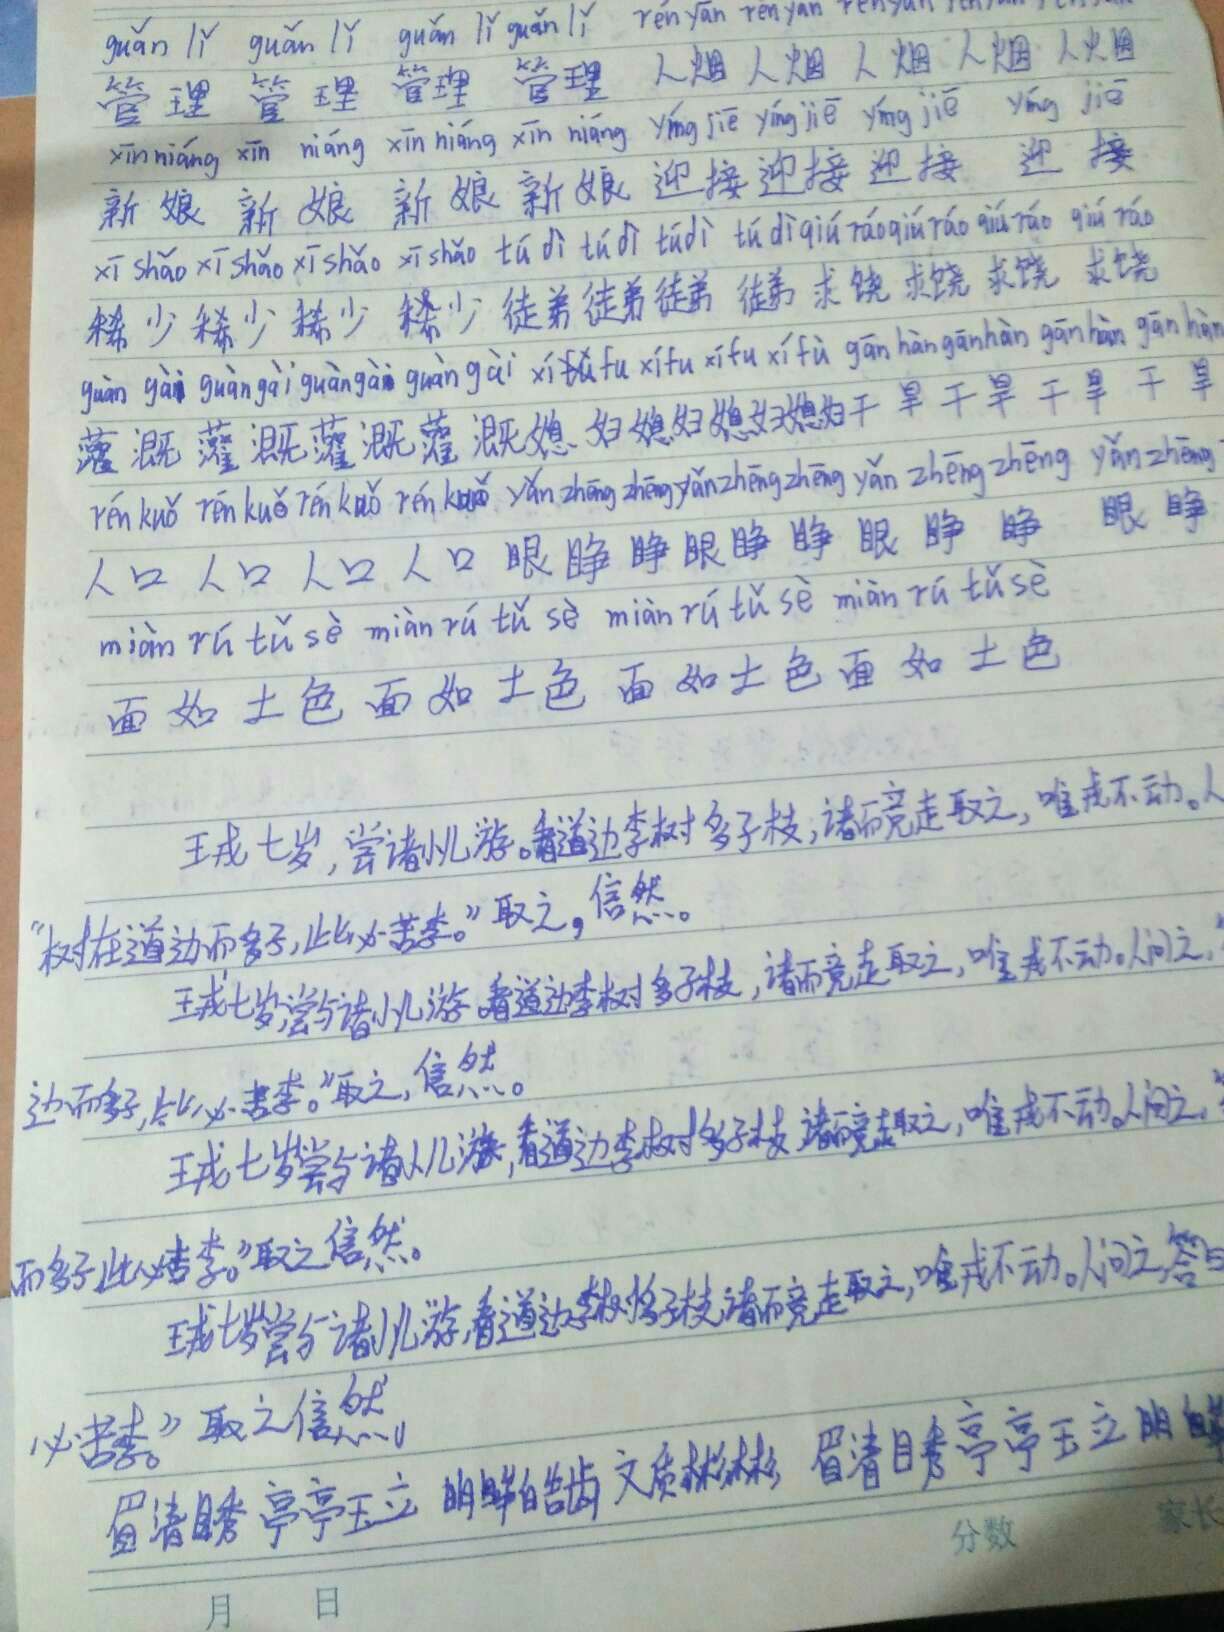 guǎn lǐ guǎn lǐ guǎn lǐ guǎn lǐ rén yān rén yān rén yān rén yān rén yān
管理 管理 管理 管理 人烟 人烟 人烟 人烟 人烟
xīn niáng xīn niáng xīn niáng xīn niáng yíng jiē yíng jiē yíng jiē yíng jiē
新娘 新娘 新娘 新娘 迎接 迎接 迎接 迎接
xī shǎo xī shǎo xī shǎo xī shǎo tú dì tú dì tú dì tú dì qiú ráo qiú ráo qiú ráo qiú ráo
稀少 稀少 稀少 稀少 徒弟 徒弟 徒弟 徒弟 求饶 求饶 求饶 求饶
guàn gài guàn gài guàn gài guàn gài xí fu xí fu xí fu xí fù gān hàn gān hàn gān hàn gān hàn
灌溉 灌溉 灌溉 灌溉 媳妇 媳妇 媳妇 媳妇 干旱 干旱 干旱 干旱
rén kuǒ rén kuǒ rén kuǒ rén kuǒ yǎn zhēng zhēng yǎn zhēng zhēng yǎn zhēng zhēng yǎn zhēng
人口 人口 人口 人口 眼睁睁 眼睁睁 眼睁睁 眼睁
miàn rú tǔ sè miàn rú tǔ sè miàn rú tǔ sè miàn rú tǔ sè
面如土色 面如土色 面如土色 面如土色
王戎七岁,尝诸小儿游。看道边李树多子枝,诸而竞走取之,唯戎不动。人
“树在道边而多子,此必苦李。”取之,信然。
王戎七岁,尝与诸小儿游。看道边李树多子枝,诸而竞走取之,唯戎不动。人问之,
边而多子,此必苦李。”取之,信然。
王戎七岁尝与诸小儿游,看道边李树多子枝 诸而竞走取之,唯戎不动。人问之,“
而多子,此必苦李。”取之信然。
王戎七岁尝与诸小儿游,看道边李树多子枝,诸而竞走取之,唯戎不动。人问之,答曰
必苦李。”取之信然。
眉清目秀 亭亭玉立 明眸皓齿 文质彬彬 眉清目秀 亭亭玉立 明眸
分数 家长
月 日